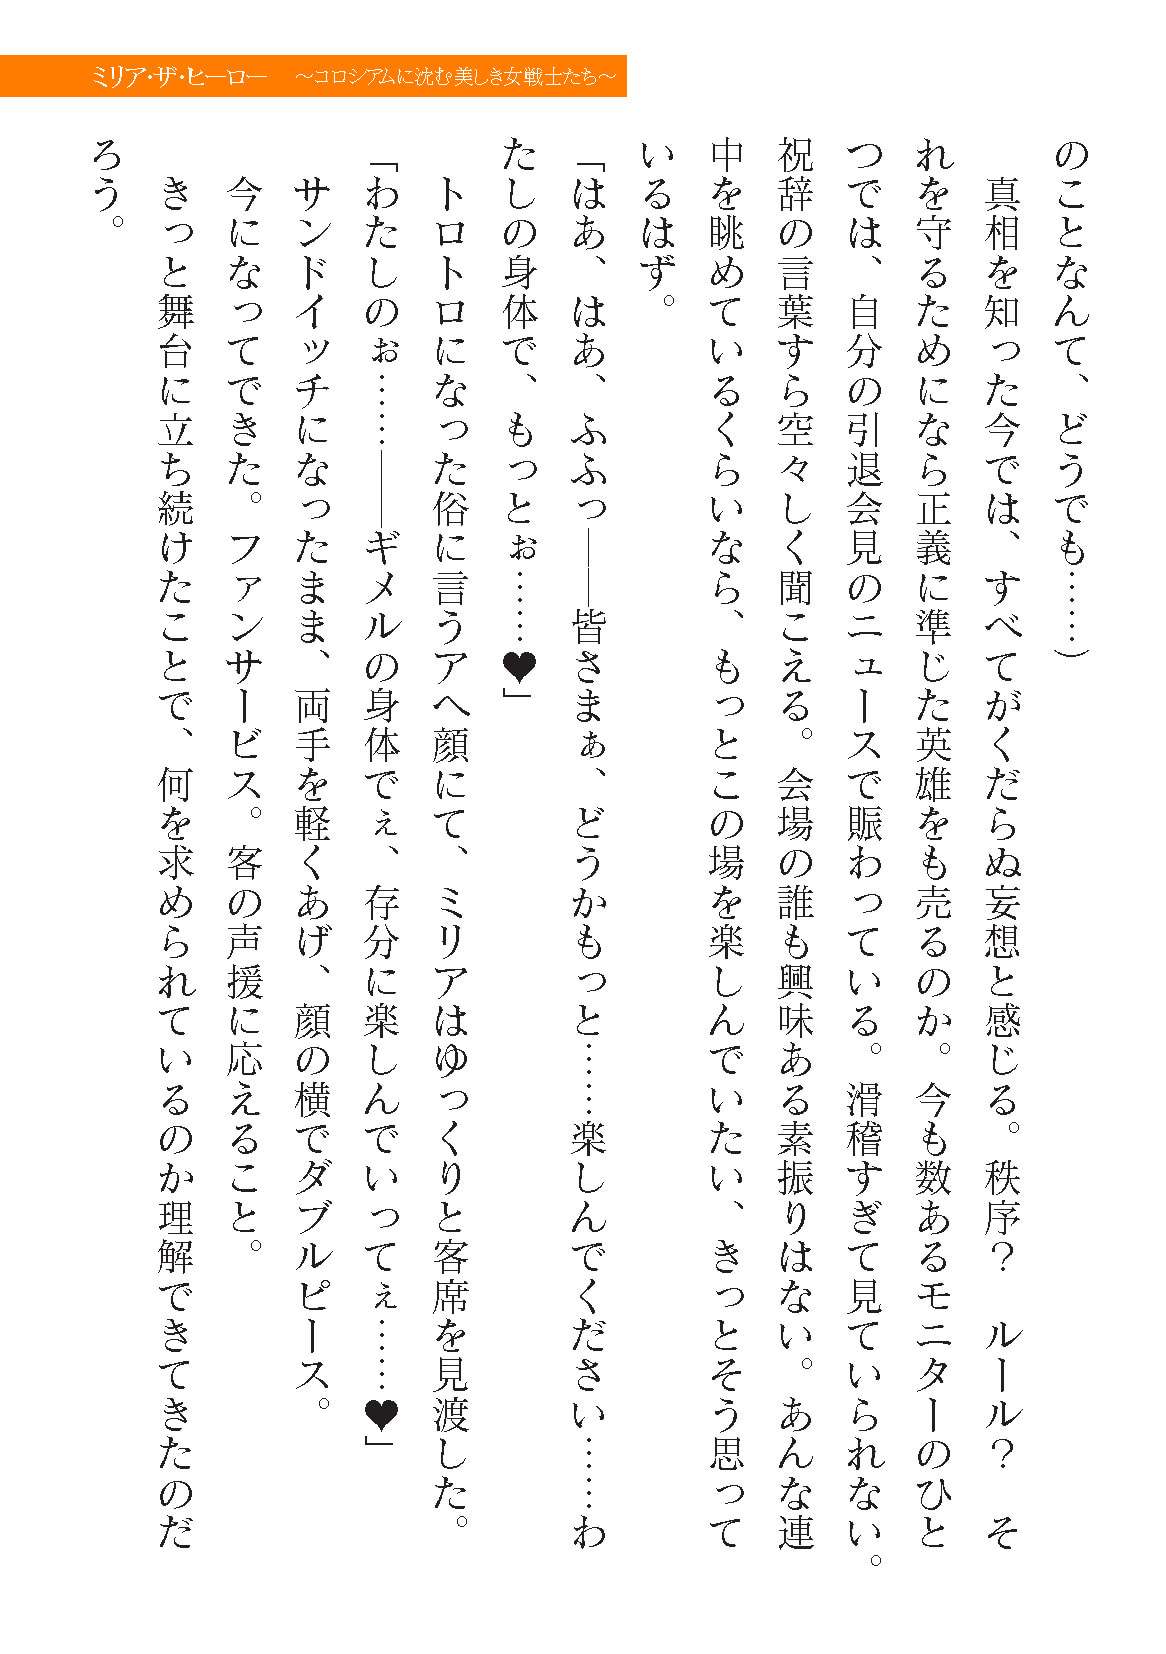 ミリア・ザ・ヒーロー　～コロシアムに沈む美しき女戦士たち～
のことなんて、どうでも……）
　真相を知った今では、すべてがくだらぬ妄想と感じる。秩序？　ルール？　そ
れを守るためになら正義に準じた英雄をも売るのか。今も数あるモニターのひと
つでは、自分の引退会見のニュースで賑わっている。滑稽すぎて見ていられない。
祝辞の言葉すら空々しく聞こえる。会場の誰も興味ある素振りはない。あんな連
中を眺めているくらいなら、もっとこの場を楽しんでいたい、きっとそう思って
いるはず。
「はあ、はあ、ふふっ――皆さまぁ、どうかもっと……楽しんでください……わ
たしの身体で、もっとぉ……♥」
　トロトロになった俗に言うアヘ顔にて、ミリアはゆっくりと客席を見渡した。
「わたしのぉ……――ギメルの身体でぇ、存分に楽しんでいってぇ……♥」
　サンドイッチになったまま、両手を軽くあげ、顔の横でダブルピース。
　今になってできた。ファンサービス。客の声援に応えること。
　きっと舞台に立ち続けたことで、何を求められているのか理解できてきたのだ
ろう。